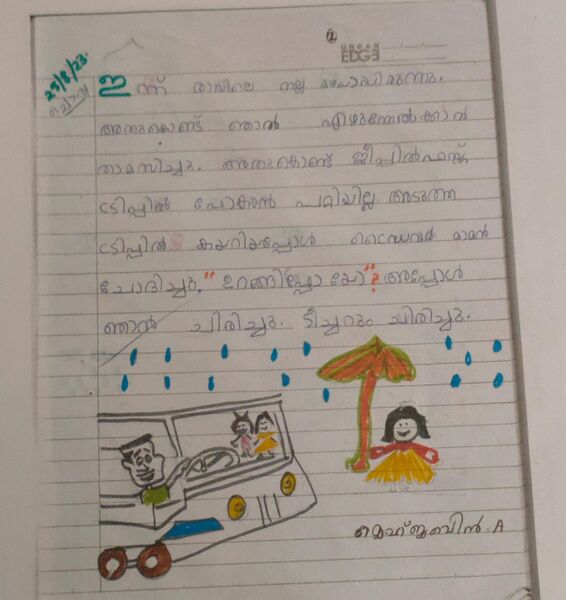 23/8/23.
ചൊവ്വ
1
URBAN
EDGE
ഇന്ന് രാവിലെ നല്ല മഴയായിരുന്നു.
അതുകൊണ്ട് ഞാൻ എഴുന്നേൽക്കാൻ
താമസിച്ചു. അതുകൊണ്ട് ജീപ്പിൽ ഫസ്റ്റ്
ട്രിപ്പിൽ പോകാൻ പറ്റിയില്ല അടുത്ത
ട്രിപ്പിൽ കയറിയപ്പോൾ ഡ്രൈവർ മാമൻ
ചോദിച്ചു, "ഉറങ്ങിപ്പോയോ"? അപ്പോൾ
ഞാൻ ചിരിച്ചു. ടീച്ചറും ചിരിച്ചു.
മെഹ്ജബിൻ. A